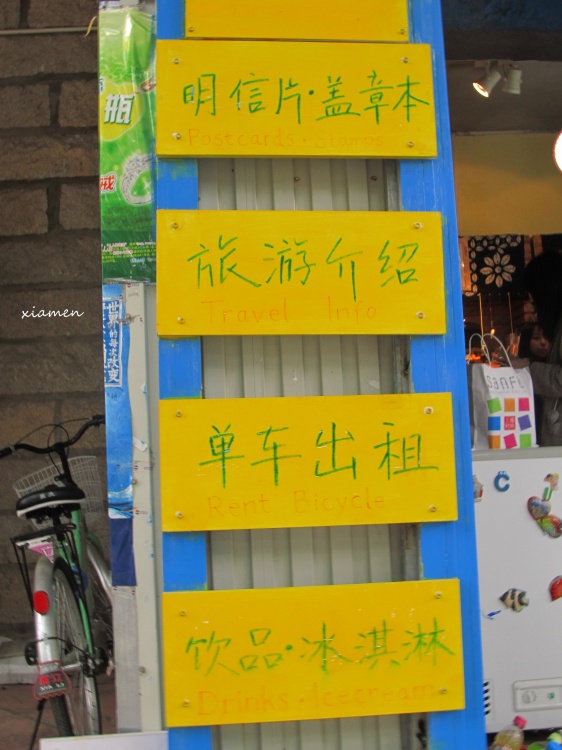 明信片·盖章本
Postcards · Stamps
旅游介绍
Travel Info
单车出租
Rent Bicycle
饮品·冰淇淋
Drinks · Icecream
瓶
xiamen
世界的每次改变